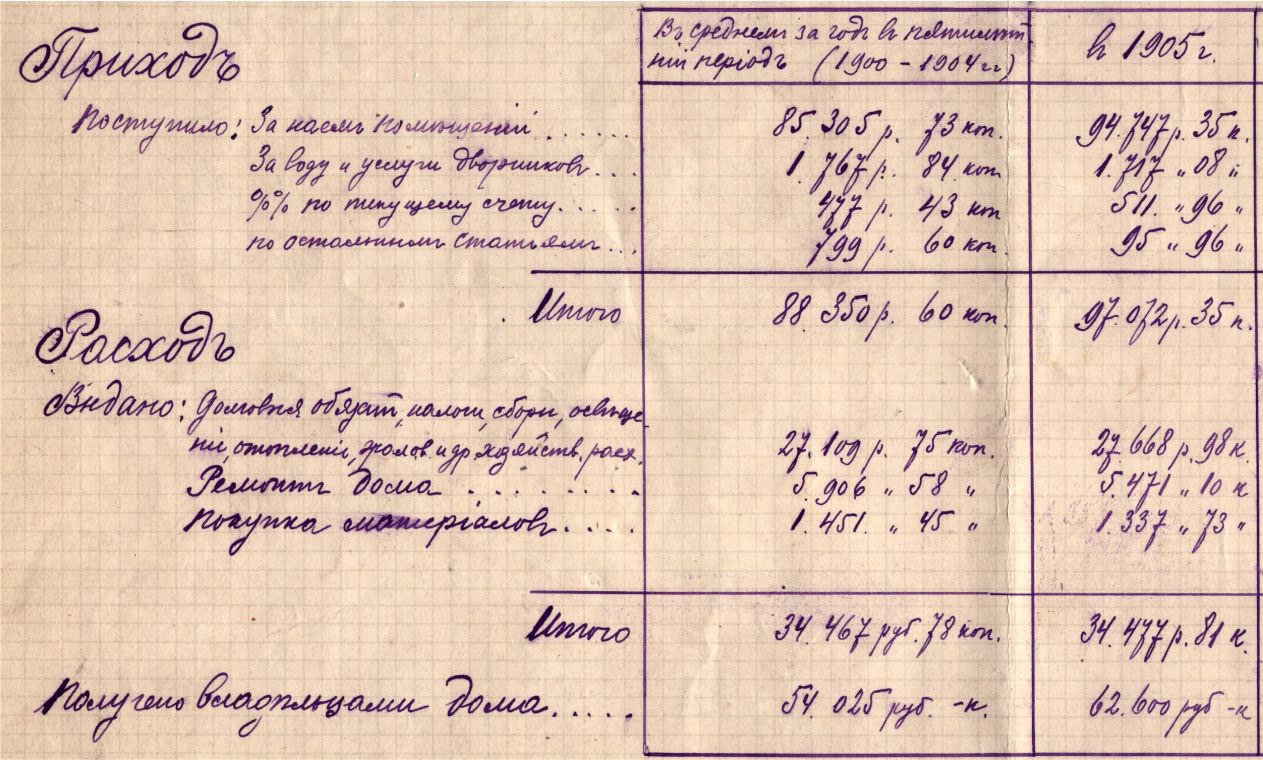 Приходъ
Въ среднемъ за годъ въ пятилѣт
ній періодъ (1900 - 1904 гг)
въ 1905 г.
Поступило: За наемъ помѣщеній ...... 85.305 р. 73 коп. 94.747 р. 35 к.
За воду и услуги дворниковъ... 1.767 р. 84 коп. 1.717 „ 08 „
%% по текущему счету..... 477 р. 43 коп 511. „ 96 „
по остальнымъ статьямъ... 799 р. 60 коп. 95 „ 96 „
Итого 88.350 р. 60 коп. 97.072 р. 35 к.
Расходъ
Выдано: Домовыя обязат, налоги, сборы, освѣще
ніе, отопленіе, жалов. и др. хозяйств. расх. 27.109 р. 75 коп. 27.668 р. 98 к.
Ремонтъ дома ......... 5.906 „ 58 „ 5.471 „ 10 к
Покупка матеріаловъ.... 1.451. „ 45 „ 1.337 „ 73 „
Итого 34.467 руб. 78 коп. 34.477 р. 81 к.
Получено владѣльцами дома..... 54.025 руб. -к. 62.600 руб -к